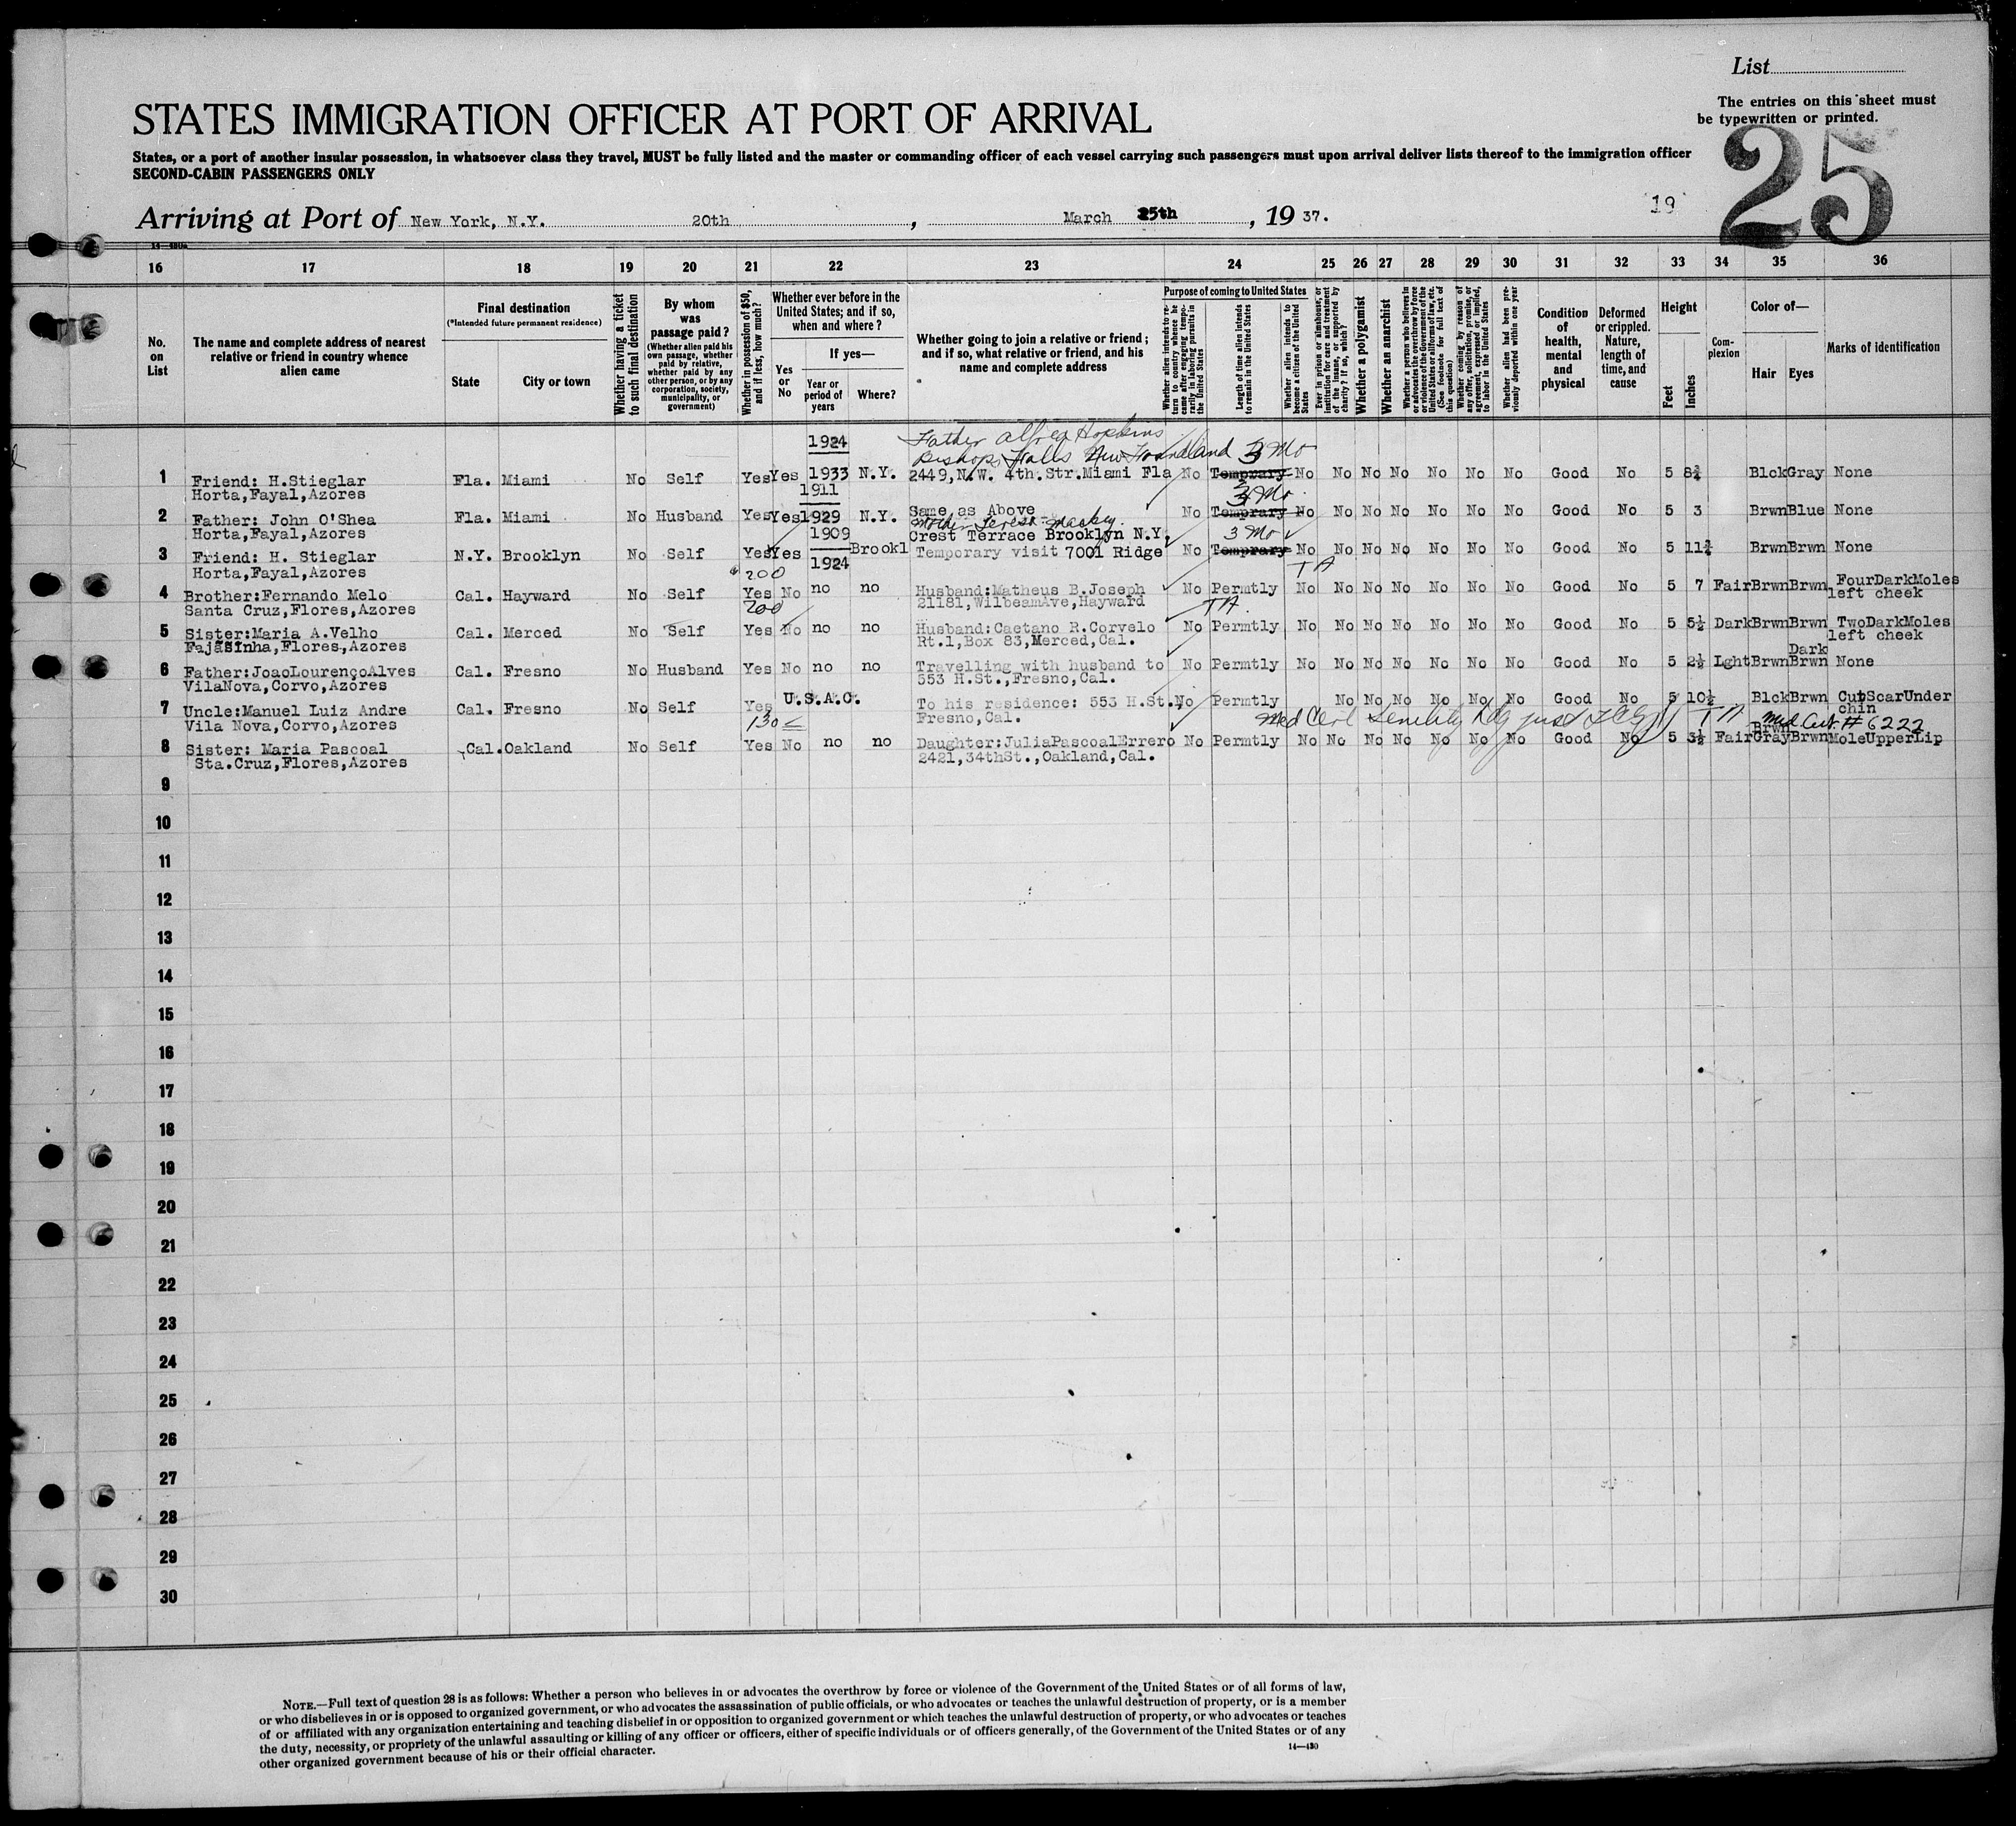 List
The entries on this sheet must
be typewritten or printed.
STATES IMMIGRATION OFFICER AT PORT OF ARRIVAL
25
States, or a port of another insular possession, in whatsoever class they travel, MUST be fully listed and the master or commanding officer of each vessel carrying such passengers must upon arrival deliver lists thereof to the immigration officer
SECOND-CABIN PASSENGERS ONLY
Arriving at Port of New York, N.Y. 20th, March 25th, 19 37.
19
16 17 18 19 20 21 22 23 24 25 26 27 28 29 30 31 32 33 34 35 36
No. on List
The name and complete address of nearest relative or friend in country whence alien came
Final destination
(*Intended future permanent residence)
State City or town
Whether having a ticket to such final destination
By whom was passage paid?
(Whether alien paid his own passage, whether paid by relative, whether paid by any other person, or by any corporation, society, municipality, or government)
Whether in possession of $50, and if less, how much?
Whether ever before in the United States; and if so, when and where?
Yes or No
If yes—
Year or period of years
Where?
Whether going to join a relative or friend; and if so, what relative or friend, and his name and complete address
Purpose of coming to United States
Whether alien intends to return to country whence he came after engaging temporarily in laboring pursuits in the United States
Length of time alien intends to remain in the United States
Whether alien intends to become a citizen of the United States
Ever in prison or almshouse, or institution for care and treatment of the insane, or supported by charity? If so, which?
Whether a polygamist
Whether an anarchist
Whether a person who believes in or advocates the overthrow by force or violence of the Government of the United States or all forms of law, etc. (See footnote for full text of this question)
Whether coming by reason of any offer, solicitation, promise, or agreement, expressed or implied, to labor in the United States
Whether alien had been previously deported within one year
Condition of health, mental and physical
Deformed or crippled. Nature, length of time, and cause
Height
Feet Inches
Complexion
Color of—
Hair Eyes
Marks of identification
1924 Father Alfred Hopkins
Bishops Falls New Foundland 3 Mo
1 Friend: H.Stieglar Fla. Miami No Self Yes Yes 1933 N.Y. 2449,N.W. 4th.Str.Miami Fla No Temprary No No No No No No No Good No 5 8¾ Blck Gray None
Horta,Fayal,Azores 1911 3 Mo.
2 Father: John O'Shea Fla. Miami No Husband Yes Yes 1929 N.Y. Same as Above No Temprary No No No No No No No Good No 5 3 Brwn Blue None
Horta,Fayal,Azores 1909 Crest Terrace Brooklyn N.Y. 3 Mo
3 Friend: H. Stieglar N.Y. Brooklyn No Self Yes Yes Brookl Temporary visit 7001 Ridge No Temprary No No No No No No No Good No 5 11¾ Brwn Brwn None
Horta,Fayal,Azores 200 1924 TA
4 Brother:Fernando Melo Cal. Hayward No Self Yes No no no Husband:Matheus B.Joseph No Permtly No No No No No No No Good No 5 7 Fair Brwn Brwn FourDarkMoles
Santa Cruz,Flores,Azores 200 21181,WilbeamAve,Hayward TA. left cheek
5 Sister:Maria A.Velho Cal. Merced No Self Yes No no no Husband:Caetano R.Corvelo No Permtly No No No No No No No Good No 5 5½ Dark Brwn Brwn TwoDarkMoles
Fajasinha,Flores,Azores Rt.1,Box 83,Merced,Cal. left cheek
Dark
6 Father:JoaoLourençoAlves Cal. Fresno No Husband Yes No no no Travelling with husband to No Permtly No No No No No No No Good No 5 2½ Lght Brwn Brwn None
VilaNova,Corvo,Azores 553 H.St.,Fresno,Cal.
7 Uncle:Manuel Luiz Andre Cal. Fresno No Self Yes U.S.A.C. To his residence: 553 H.St. No Permtly No No No No No No Good No 5 10½ Blck Brwn CutScarUnder
Vila Nova,Corvo,Azores 130 Fresno,Cal. Med Cert TA chin
Med. Cert. # 6222
Brwn
8 Sister: Maria Pascoal Cal. Oakland No Self Yes No no no Daughter:JuliaPascoalErrero No Permtly No No No No No No No Good No 5 3½ Fair Gray Brwn MoleUpperLip
Sta.Cruz,Flores,Azores 2421,34thSt.,Oakland,Cal.
9
10
11
12
13
14
15
16
17
18
19
20
21
22
23
24
25
26
27
28
29
30
NOTE.—Full text of question 28 is as follows: Whether a person who believes in or advocates the overthrow by force or violence of the Government of the United States or of all forms of law,
or who disbelieves in or is opposed to organized government, or who advocates the assassination of public officials, or who advocates or teaches the unlawful destruction of property, or is a member
of or affiliated with any organization entertaining and teaching disbelief in or opposition to organized government or which teaches the unlawful destruction of property, or who advocates or teaches
the duty, necessity, or propriety of the unlawful assaulting or killing of any officer or officers, either of specific individuals or of officers generally, of the Government of the United States or of any
other organized government because of his or their official character.
14—430